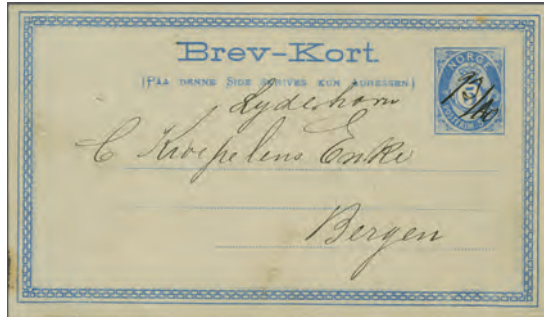 Brev-Kort.
(PAA DENNE SIDE SKRIVES KUN ADRESSEN.)
NORGE
5
Lyderhorn
C Kroepelins Enke
Bergen